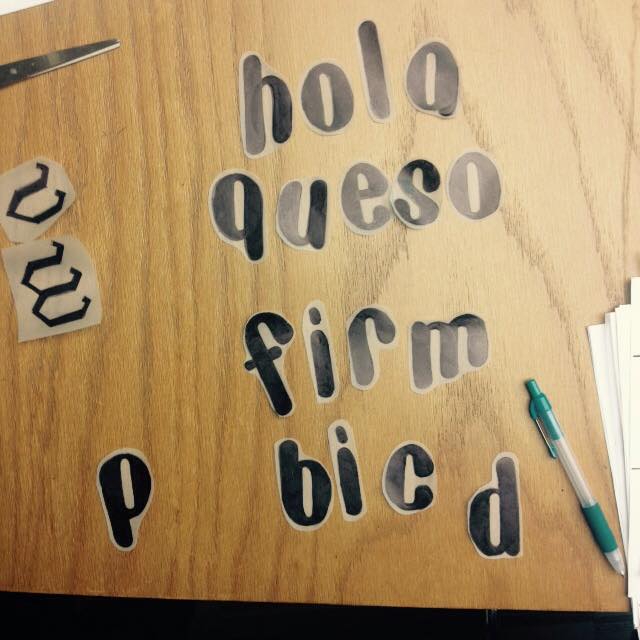 hola
queso
firm
p bic d